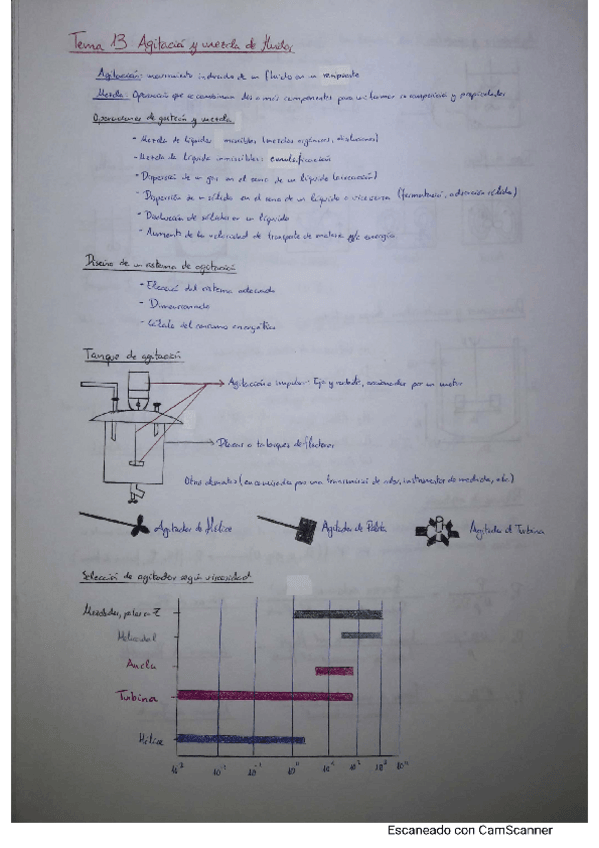 Tema 13 Agitación y mezcla de fluidos
Agitación: movimiento inducido de un fluido en un recipiente
Mezcla: Operación que se combinan dos o más componentes para uniformar su composición y propiedades
Operaciones de agitación y mezcla
- Mezcla de líquidos miscibles (mezclas orgánicas, disoluciones)
- Mezcla de líquidos inmiscibles: emulsificación
- Dispersión de un gas en el seno de un líquido (aireación)
- Dispersión de sólidos en el seno de un líquido o viceversa (fermentación, adsorción sólida)
- Disolución de sólidos en un líquido
- Aumento de la velocidad de transporte de materia y/o energía
Diseño de un sistema de agitación
- Elección del sistema adecuado
- Dimensionado
- Cálculo del consumo energético
Tanque de agitación
Agitación o impulsor: Eje y rodete, accionados por un motor
Placas o tabiques deflectores
Otros elementos (encamisados para una transmisión de calor, instrumentos de medida, etc.)
Agitador de Hélice
Agitador de Paleta
Agitador de Turbina
Selección de agitador según viscosidad
Mezclador, palas en Z
Helicoidal
Ancla
Turbina
Hélice
Escaneado con CamScanner